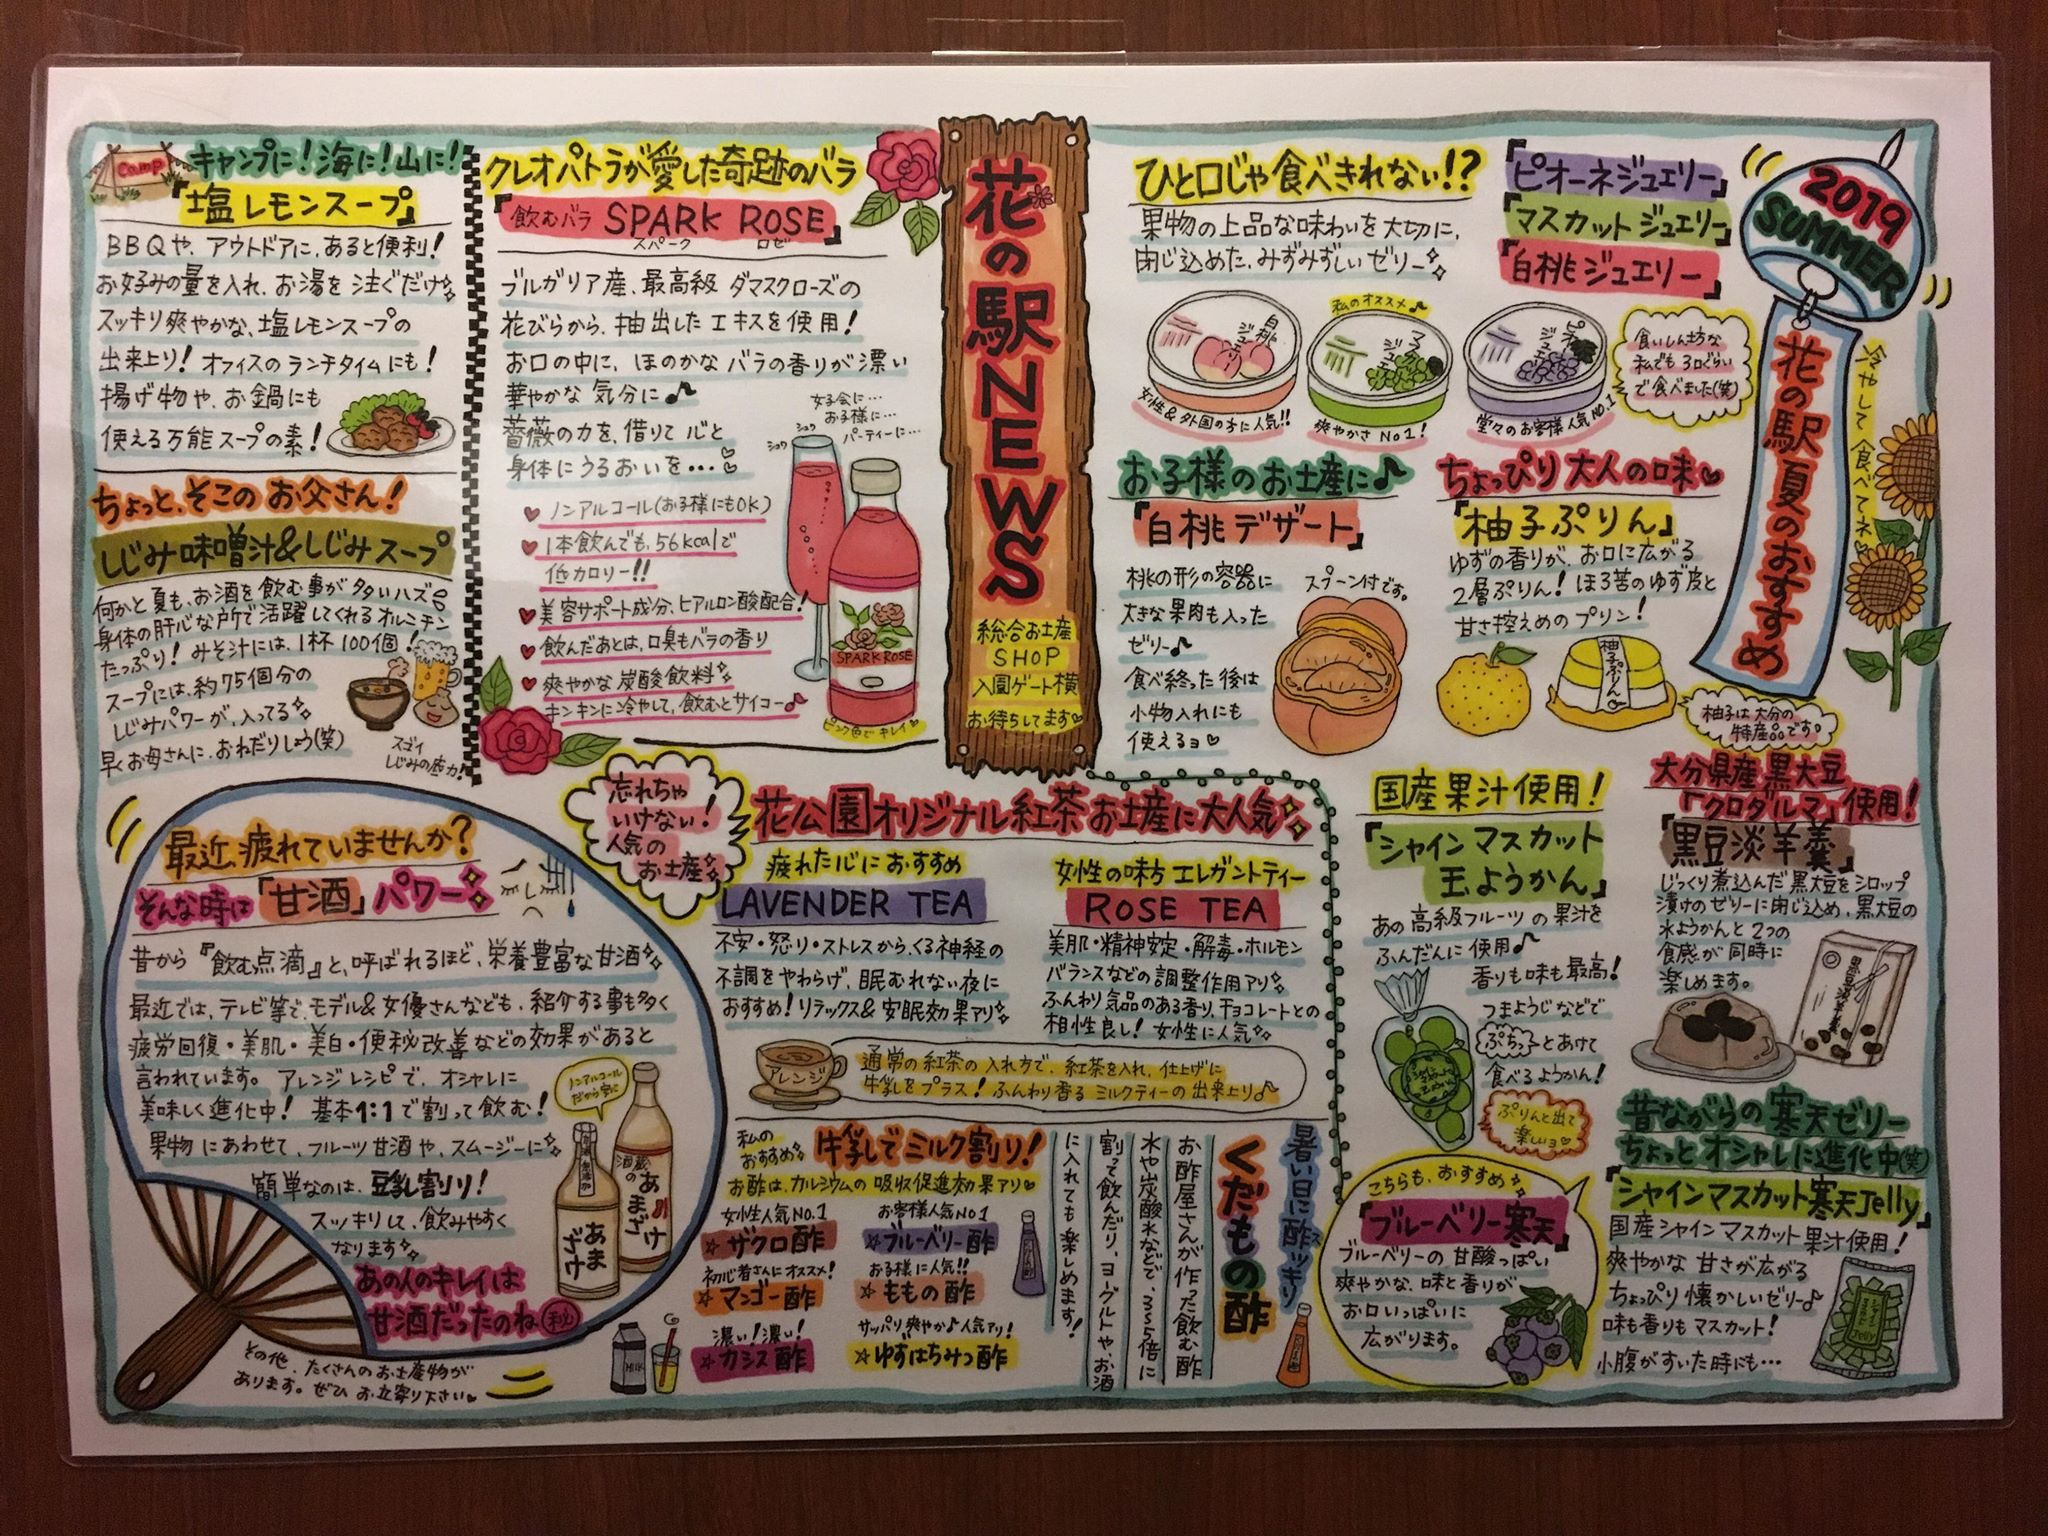 花の駅NEWS
総合お土産
SHOP
入園ゲート横
お待ちしてます
camp
キャンプに!海に!山に!
『塩レモンスープ』
BBQや、アウトドアに、あると便利!
お好みの量を入れ、お湯を注ぐだけ
スッキリ爽やかな、塩レモンスープの
出来上り!オフィスのランチタイムにも!
揚げ物や、お鍋にも
使える万能スープの素!
ちょっと、そこのお父さん!
しじみ味噌汁&しじみスープ
何かと夏も、お酒を飲む事が多いハズ
身体の肝心な所で活躍してくれるオルニチン
たっぷり!みそ汁には、1杯100個!
スープには、約75個分の
しじみパワーが、入ってる
早くお母さんに、おねだりしょう(笑)
スゴイ
しじみの底力!
クレオパトラが愛した奇跡のバラ
『飲むバラ SPARK ROSE』
スパーク ロゼ
ブルガリア産、最高級 ダマスクローズの
花びらから、抽出したエキスを使用!
お口の中に、ほのかなバラの香りが漂い
華やかな気分に♪
薔薇の力を、借りて心と
身体にうるおいを…♡
女子会に…
お子様に…
パーティーに…
シュワ
シュワ
♥ ノンアルコール(お子様にもOK)
♥ 1本飲んでも、56kcalで
低カロリー!!
♥ 美容サポート成分、ヒアルロン酸配合!
♥ 飲んだあとは、口臭もバラの香り
♥ 爽やかな炭酸飲料
キンキンに冷やして、飲むとサイコー♪
SPARK ROSE
ピンク色でキレイ♡
ひと口じゃ食べきれない!?
果物の上品な味わいを大切に、
閉じ込めた、みずみずしいゼリー
『ピオーネジュエリー』
『マスカットジュエリー』
『白桃ジュエリー』
白桃ジュエリー
女性&外国の方に人気!!
私のオススメ♪
マスカットジュエリー
爽やかさNo1!
ピオーネジュエリー
堂々のお客様人気NO.1
食いしん坊な
私でも3口ぐらい
で食べました(笑)
2019
SUMMER
花の駅夏のおすすめ
冷やして食べてネ♡
お子様のお土産に♪
『白桃デザート』
桃の形の容器に
大きな果肉も入った
ゼリー♪
食べ終った後は
小物入れにも
使えるヨ♡
スプーン付です。
ちょっぴり大人の味♡
『柚子ぷりん』
ゆずの香りが、お口に広がる
2層ぷりん!ほろ苦のゆず皮と
甘さ控えめのプリン!
柚子ぷりん
柚子は大分の
特産品です。
最近疲れていませんか?
そんな時は「甘酒」パワー
昔から『飲む点滴』と、呼ばれるほど、栄養豊富な甘酒
最近では、テレビ等で、モデル&女優さんなども、紹介する事も多く
疲労回復・美肌・美白・便秘改善などの効果があると
言われています。アレンジレシピで、オシャレに
美味しく進化中!基本1:1で割って飲む!
果物にあわせて、フルーツ甘酒や、スムージーに
簡単なのは、豆乳割り!
スッキリして、飲みやすく
なります
あの人のキレイは
甘酒だったのね㊙
ノンアルコール
だから安心
あまざけ
酒蔵のあまざけ
その他、たくさんのお土産物が
あります。ぜひお立寄り下さい
忘れちゃ
いけない!
人気の
お土産
花公園オリジナル紅茶お土産に大人気
疲れた心におすすめ
LAVENDER TEA
不安・怒り・ストレスから、くる神経の
不調をやわらげ、眠むれない夜に
おすすめ!リラックス&安眠効果アリ
女性の味方エレガントティー
ROSE TEA
美肌・精神安定・解毒・ホルモン
バランスなどの調整作用アリ
ふんわり気品のある香り、チョコレートとの
相性良し!女性に人気
アレンジ
通常の紅茶の入れ方で、紅茶を入れ、仕上げに
牛乳をプラス!ふんわり香るミルクティーの出来上り♪
私の
おすすめ
牛乳でミルク割り!
お酢は、カルシウムの吸収促進効果アリ♡
女性人気NO.1
☆ザクロ酢
お客様人気NO1
☆ブルーベリー酢
初心者さんにオススメ!
☆マンゴー酢
お子様に人気!!
☆ももの酢
濃い!濃い!
☆カシス酢
サッパリ爽やか♪人気アリ!
☆ゆずはちみつ酢
MILK
暑い日に酢ッキリ
ス
くだもの酢
お酢屋さんが作った飲む酢
水や炭酸水などで、3~5倍に
割って飲んだり、ヨーグルトや、お酒
に入れても楽しめます!
国産果汁使用!
『シャインマスカット
玉ようかん』
あの高級フルーツの果汁を
ふんだんに使用♪
香りも味も最高!
つまようじなどで
ぷちっとあけて
食べるようかん!
ぷりんと出て
楽しいョ♡
大分県産黒大豆
「クロダルマ」使用!
『黒豆淡羊羹』
じっくり煮込んだ黒大豆をシロップ
漬けのゼリーに閉じ込め、黒大豆の
水ようかんと2つの
食感が同時に
楽しめます。
黒豆淡羊羹
こちらも、おすすめ
『ブルーベリー寒天』
ブルーベリーの甘酸っぱい
爽やかな、味と香りが
お口いっぱいに
広がります。
昔ながらの寒天ゼリー
ちょっとオシャレに進化中(笑)
『シャインマスカット寒天Jelly』
国産シャインマスカット果汁使用!
爽やかな甘さが広がる
ちょっぴり懐かしいゼリー♪
味も香りもマスカット!
小腹がすいた時にも…